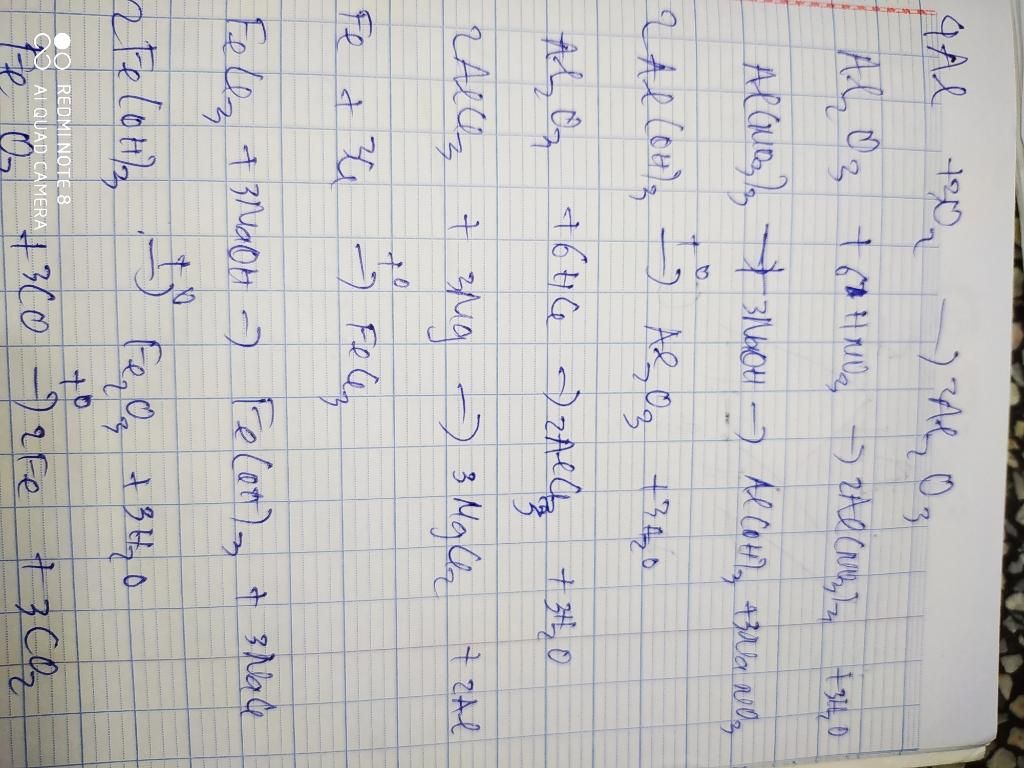 4Al + 3O2 → 2Al2O3
Al2O3 + 6HNO3 → 2Al(NO3)3 + 3H2O
Al(NO3)3 + 3NaOH → Al(OH)3 + 3NaNO3
2Al(OH)3 →t0 Al2O3 + 3H2O
Al2O3 + 6HCl → 2AlCl3 + 3H2O
2AlCl3 + 3Mg → 3MgCl2 + 2Al
Fe + 3Cl →t0 FeCl3
FeCl3 + 3NaOH → Fe(OH)3 + 3NaCl
2Fe(OH)3 →t0 Fe2O3 + 3H2O
Fe2O3 + 3CO →t0 2Fe + 3CO2
REDMI NOTE 8
AI QUAD CAMERA